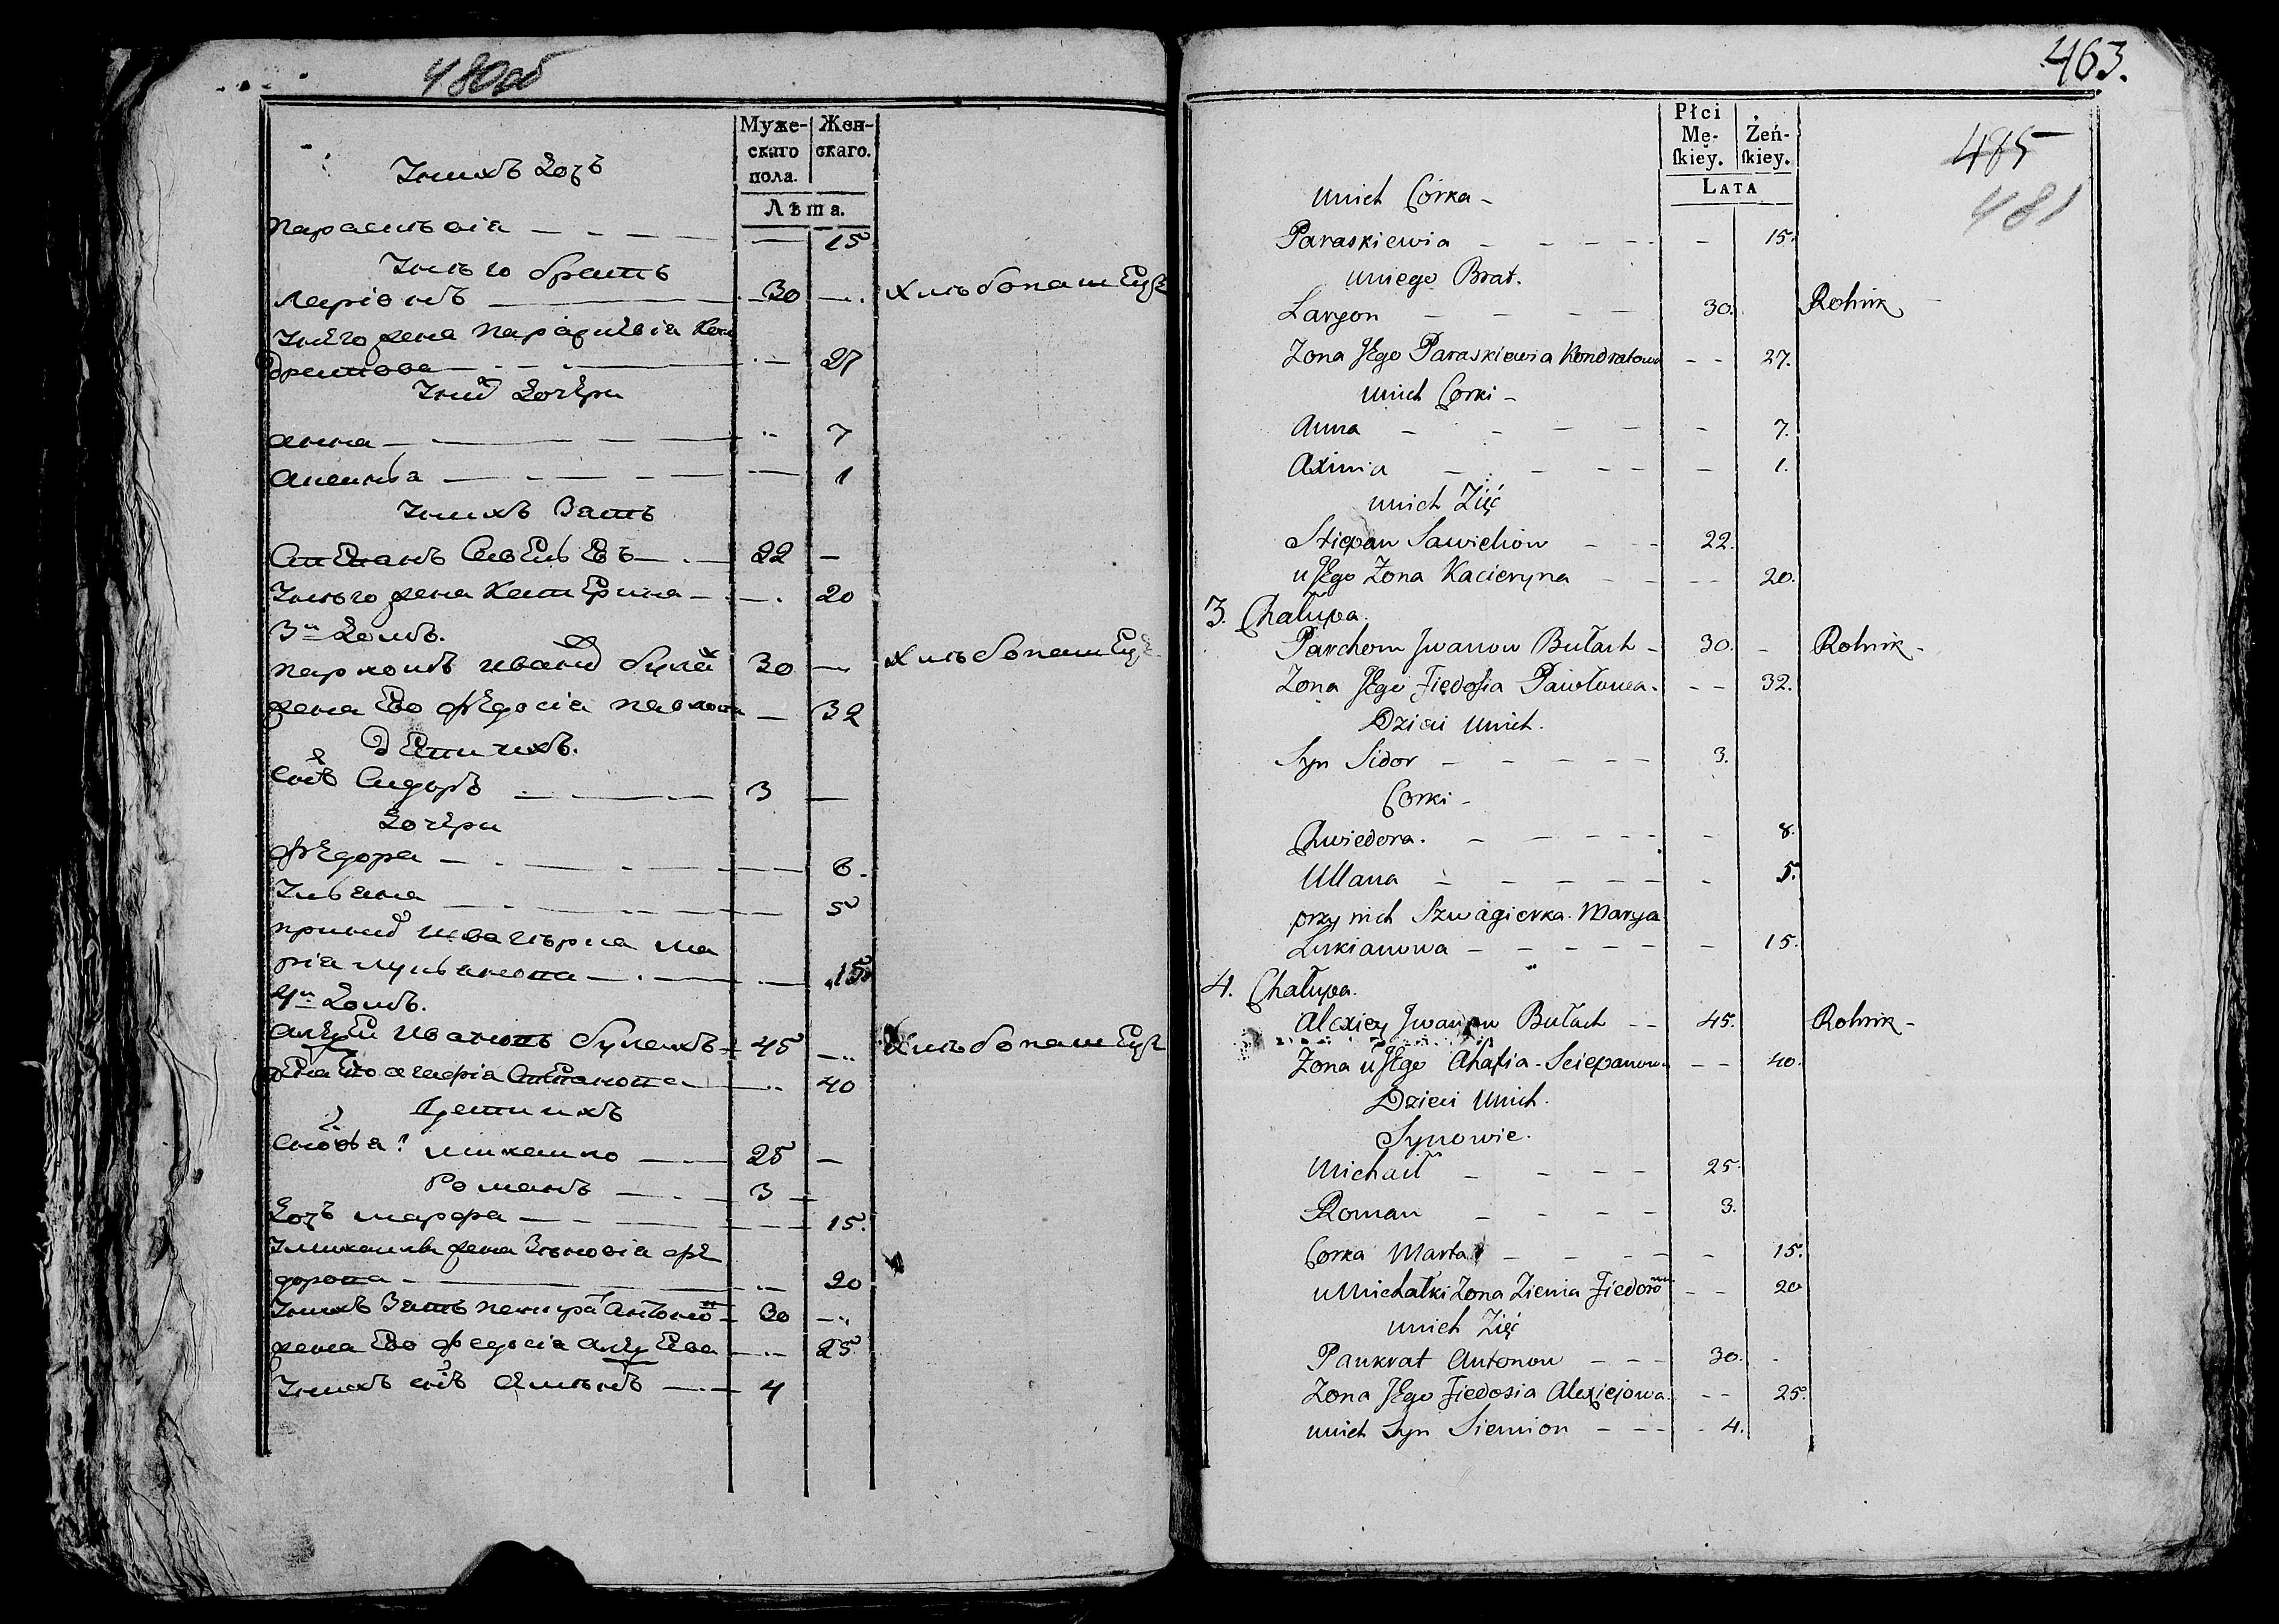 480об
Муже-
скаго
пола.
Жен-
скаго.
Лѣта.
Унихъ дочъ
Параскѣвія 15
Унѣго братъ
Ларіонъ 30 Хлѣбопашецъ
Унего жена Параскевія Кон
дратова 27
Уних дочери
Анна 7
Аксинѣа 1
Унихъ Зать
Степанъ Савелѣевъ 22
Унѣго жена Катерина 20
3й домъ.
Пархомъ Иванов Булах 30 Хлѣбопашецъ
жена Ево Федосія Павлова 32
дети ихъ.
Снъ Сидоръ 3
дочери
Федора 8.
Ульяна 5
приних швагѣрка Ма
рія Лукьянова 15
4й домъ.
Алексей Ивановъ Булахъ 45 Хлѣбопашецъ
жена Ево Агафія Степанова 40
дети ихъ
Сновья: Михайло 25
Романъ 3
дочъ Марфа 15.
Умихайлы жена Зѣновія Фе
дорова 20
Унихъ Зать Панкрат Антонов 30
жена Ево Федосія Алексеева 25
Унихъ снъ Семѣнъ 4
463.
485
481
Płci
Mę-
ſkiey.
Żeń-
ſkiey.
LATA
unich Corka -
Paraskiewia 15.
uniego Brat.
Laryon 30. Rolnik
Zona Jego Paraskiewia Kondratowa 27.
unich Corki -
Anna 7.
Axinia 1.
unich Zięć
Stiepan Sawieliow 22.
u Jego Zona Kacieryna 20.
3. Chałupa.
Parchom Jwanow Bułach - 30. - Rolnik -
Zona Jego Fiedosia Pawłowa. 32.
Dzieci unich.
Syn Sidor 3.
Corki -
Chwiedora. 8.
Ullana 5.
przy nich Szwagierka Marya
Lukianowa 15.
4. Chałupa.
Alexiey Jwanow Bułach 45. Rolnik -
Zona u Jego Ahafia Sciepanow. 40.
Dzieci unich.
Synowie.
Michaił 25.
Roman 3.
Corka Marta 15.
u Michałki Zona Zienia Fiedorowa 20
unich Zięć
Pankrat Antonow 30.
Zona Jego Fiedosia Alexiejowa. 25.
unich Syn Siemion 4.